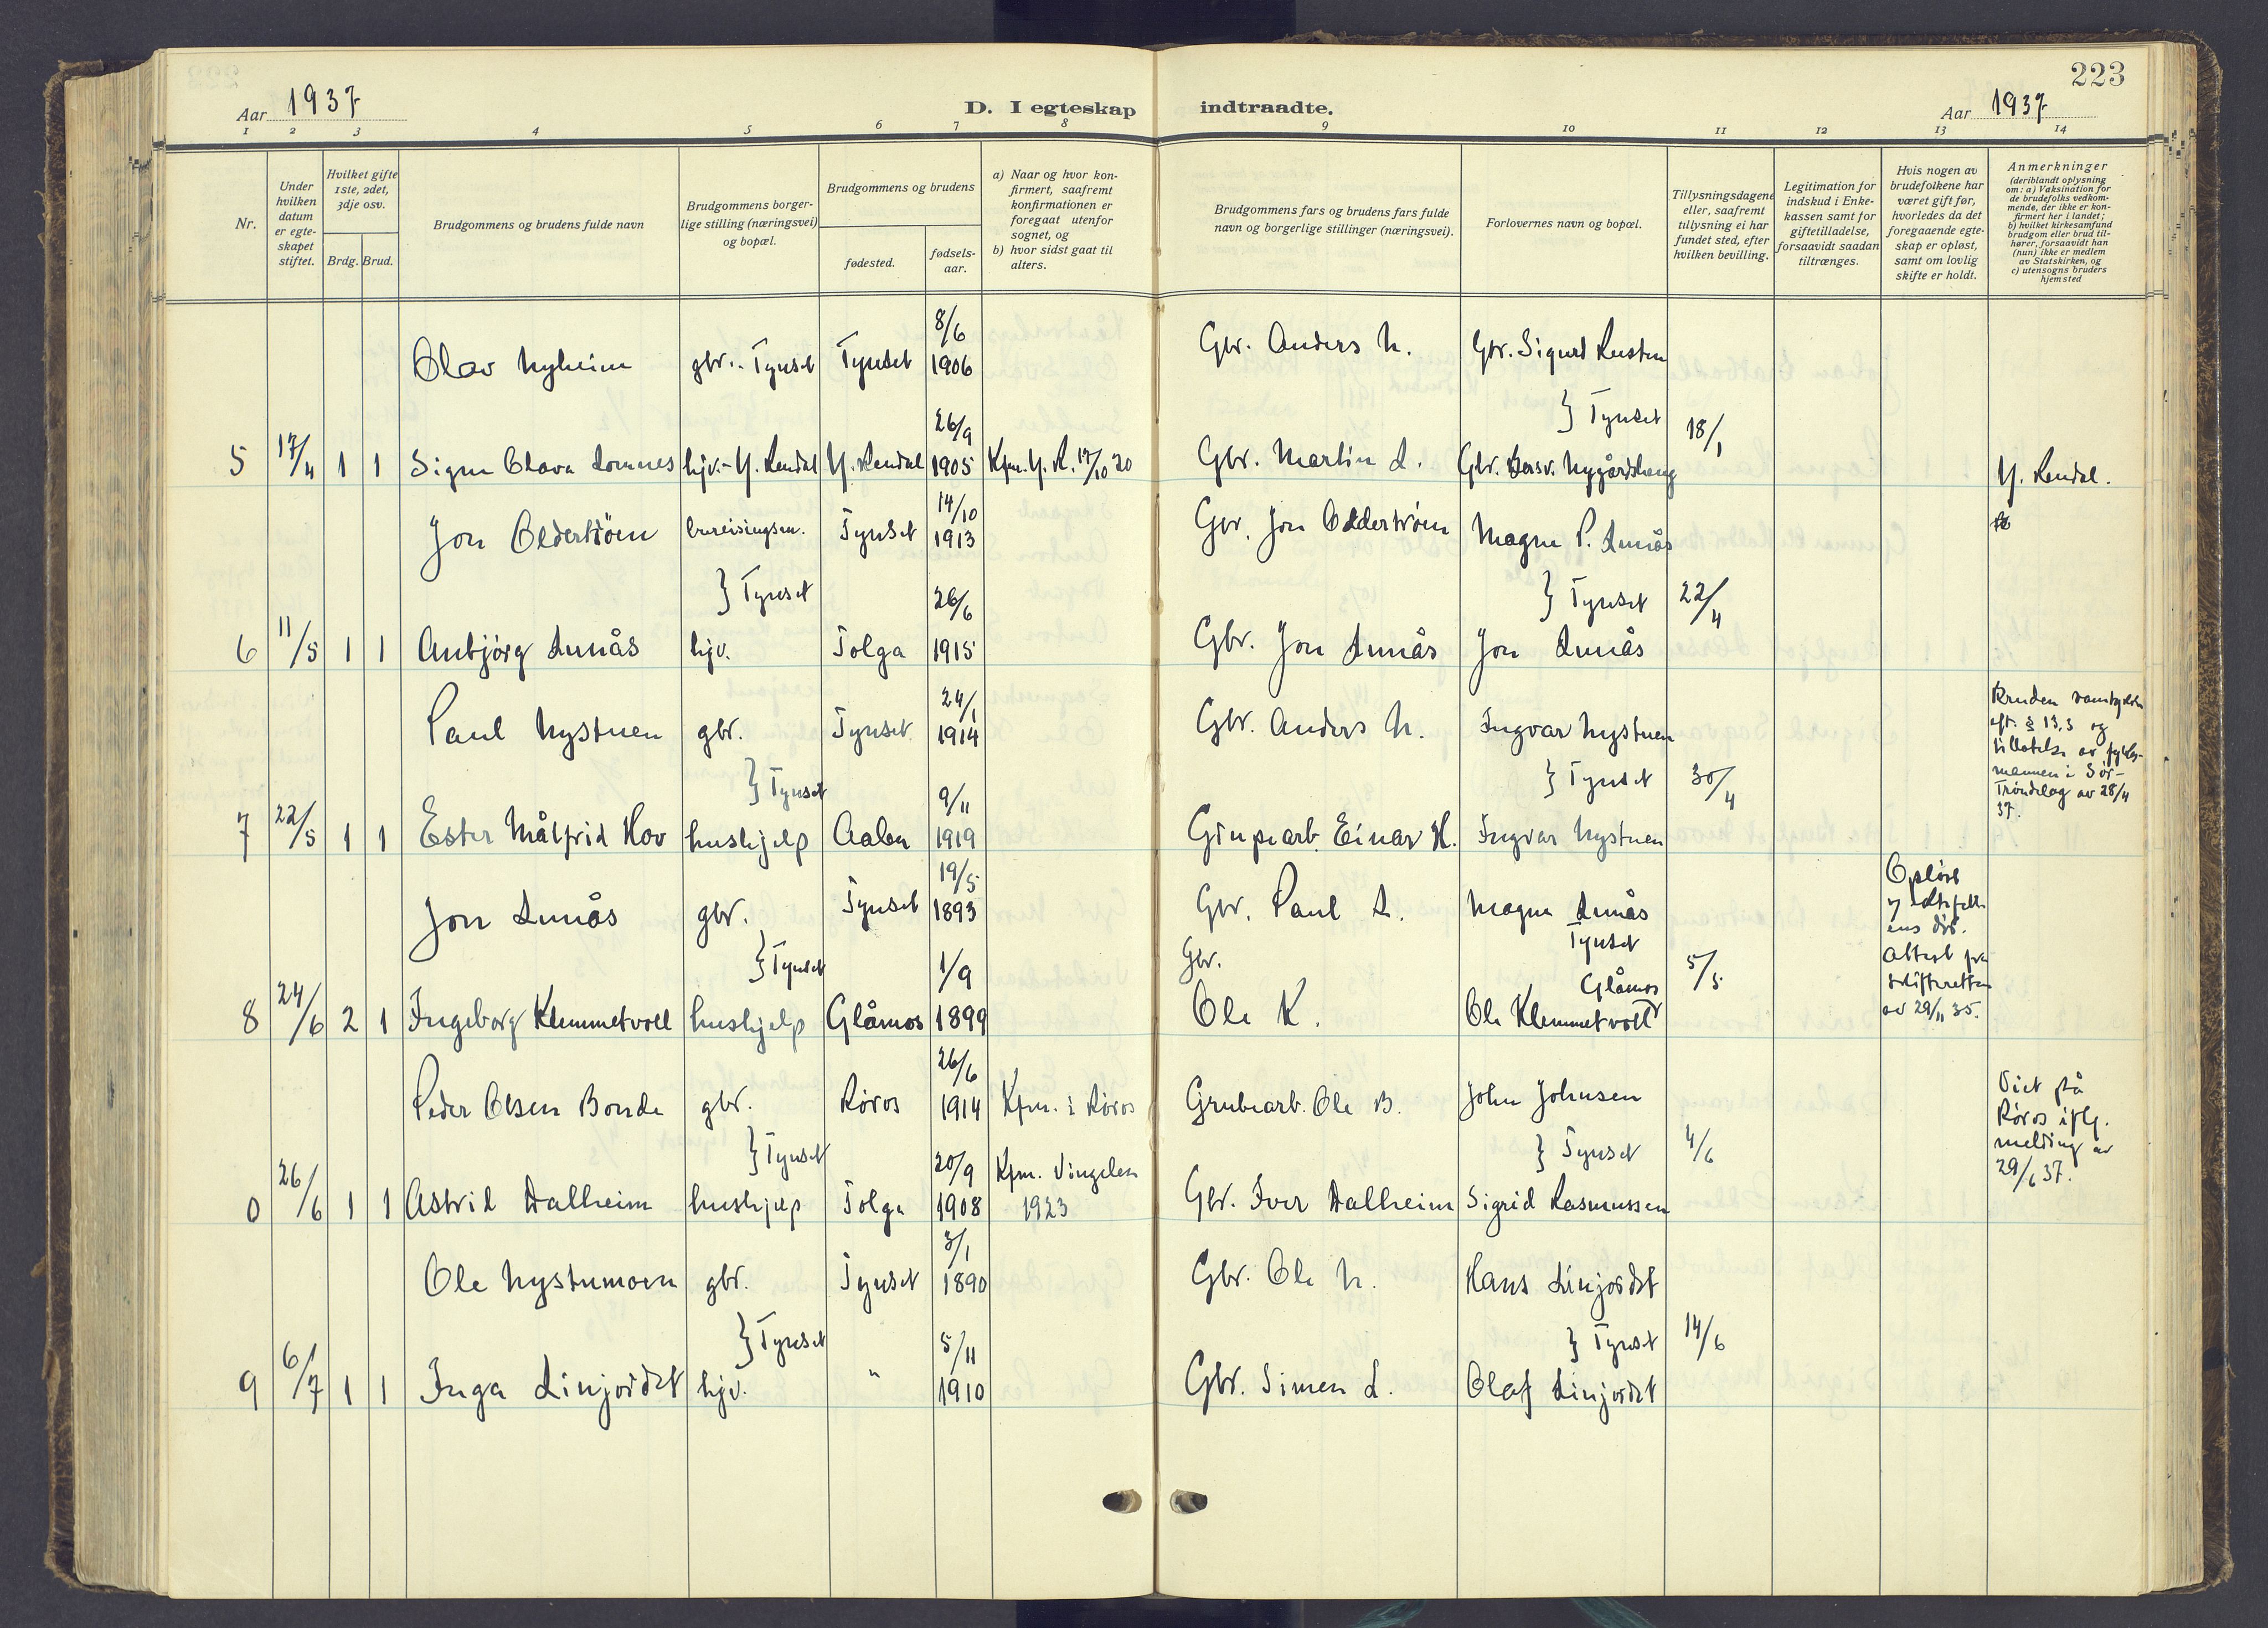 223
Aar 1937
D. I egteskap indtraadte.
Aar 1937
1 2 3 4 5 6 7 8 9 10 11 12 13 14
Nr.
Under hvilken datum er egte-skapet stiftet.
Hvilket gifte 1ste, 2det, 3dje osv.
Brdg. Brud.
Brudgommens og brudens fulde navn
Brudgommens borger-lige stilling (næringsvei) og bopæl.
Brudgommens og brudens
fødested.
fødsels-aar.
a) Naar og hvor kon-firmert, saafremt konfirmationen er foregaat utenfor sognet, og
b) hvor sidst gaat til alters.
Brudgommens fars og brudens fars fulde navn og borgerlige stillinger (næringsvei).
Forlovernes navn og bopæl.
Tillysningsdagene eller, saafremt tillysning ei har fundet sted, efter hvilken bevilling.
Legitimation for indskud i Enke-kassen samt for giftetilladelse, forsaavidt saadan tiltrænges.
Hvis nogen av brudefolkene har været gift før, hvorledes da det foregaaende egte-skap er opløst, samt om lovlig skifte er holdt.
Anmerkninger
(deriblandt oplysning om: a) Vaksination for de brudefolks vedkom-mende, der ikke er kon-firmert her i landet; b) hvilket kirkesamfund brudgom eller brud til-hører, forsaavidt han (hun) ikke er medlem av Statskirken, og c) utensogns bruders hjemsted
Olav Nyheim gbr. Tynset Tynset 8/6 1906 Gbr. Anders N. Gbr. Sigurd Rusten
} Tynset 18/1
5 17/4 1 1 Signe Olava Lomnes hjv. - Y. Rendal Y. Rendal 26/9 1905 Kfm. Y. R. 17/10 20 Gbr. Martin L. Gbr. Bersv. Nygårdshaug Y. Rendal.
Jon Oldertrøen bureisingsm. Tynset 14/10 1913 Gbr. Jon Oldertrøen Magne P. Lunås
} Tynset } Tynset 22/4
6 11/5 1 1 Anbjørg Lunås hjv. Tolga 26/6 1915 Gbr. Jon Lunås Jon Lunås
Paul Nystuen gbr. Tynset 24/1 1914 Gbr. Anders N. Ingvar Nystuen
} Tynset } Tynset 30/4
7 22/5 1 1 Ester Målfrid Hov hushjelp Aalen 9/11 1919 Einar H. Ingvar Nystuen
Bruden
eft. § 13,3 og
tillatelse av fylkes-
mannen i Sør-
Trøndelag av 28/4
37.
Jon Lunås gbr. Tynset 19/5 1893 Gbr. Paul L. Magne Lunås
} Tynset Gbr. Tynset 5/5
8 24/6 2 1 Ingeborg Klemmetvoll hushjelp Glåmos 1/9 1899 Ole K. Glåmos Ole Klemmetvoll
Opløst
v. ektefell-
ens død.
Attest fra
skifteretten
av 29/11 35.
Peder Olsen Bonde gbr. Røros 26/6 1914 Kfm. i Røros Grubearb. Ole B. John Johnsen
} Tynset } Tynset 4/6
0 26/6 1 1 Astrid Dalheim hushjelp Tolga 20/9 1908 Kfm. Vingelen 1923 Gbr. Iver Dalheim Sigrid Rasmussen
Viet på
Røros iflg.
melding av
29/6 37.
Ole Nystumoen gbr. Tynset 3/1 1890 Gbr. Ole N. Hans Linjordet
} Tynset } Tynset 14/6
9 6/7 1 1 Inga Linjordet hjv. " 5/11 1910 Gbr. Simen L. Olaf Linjordet